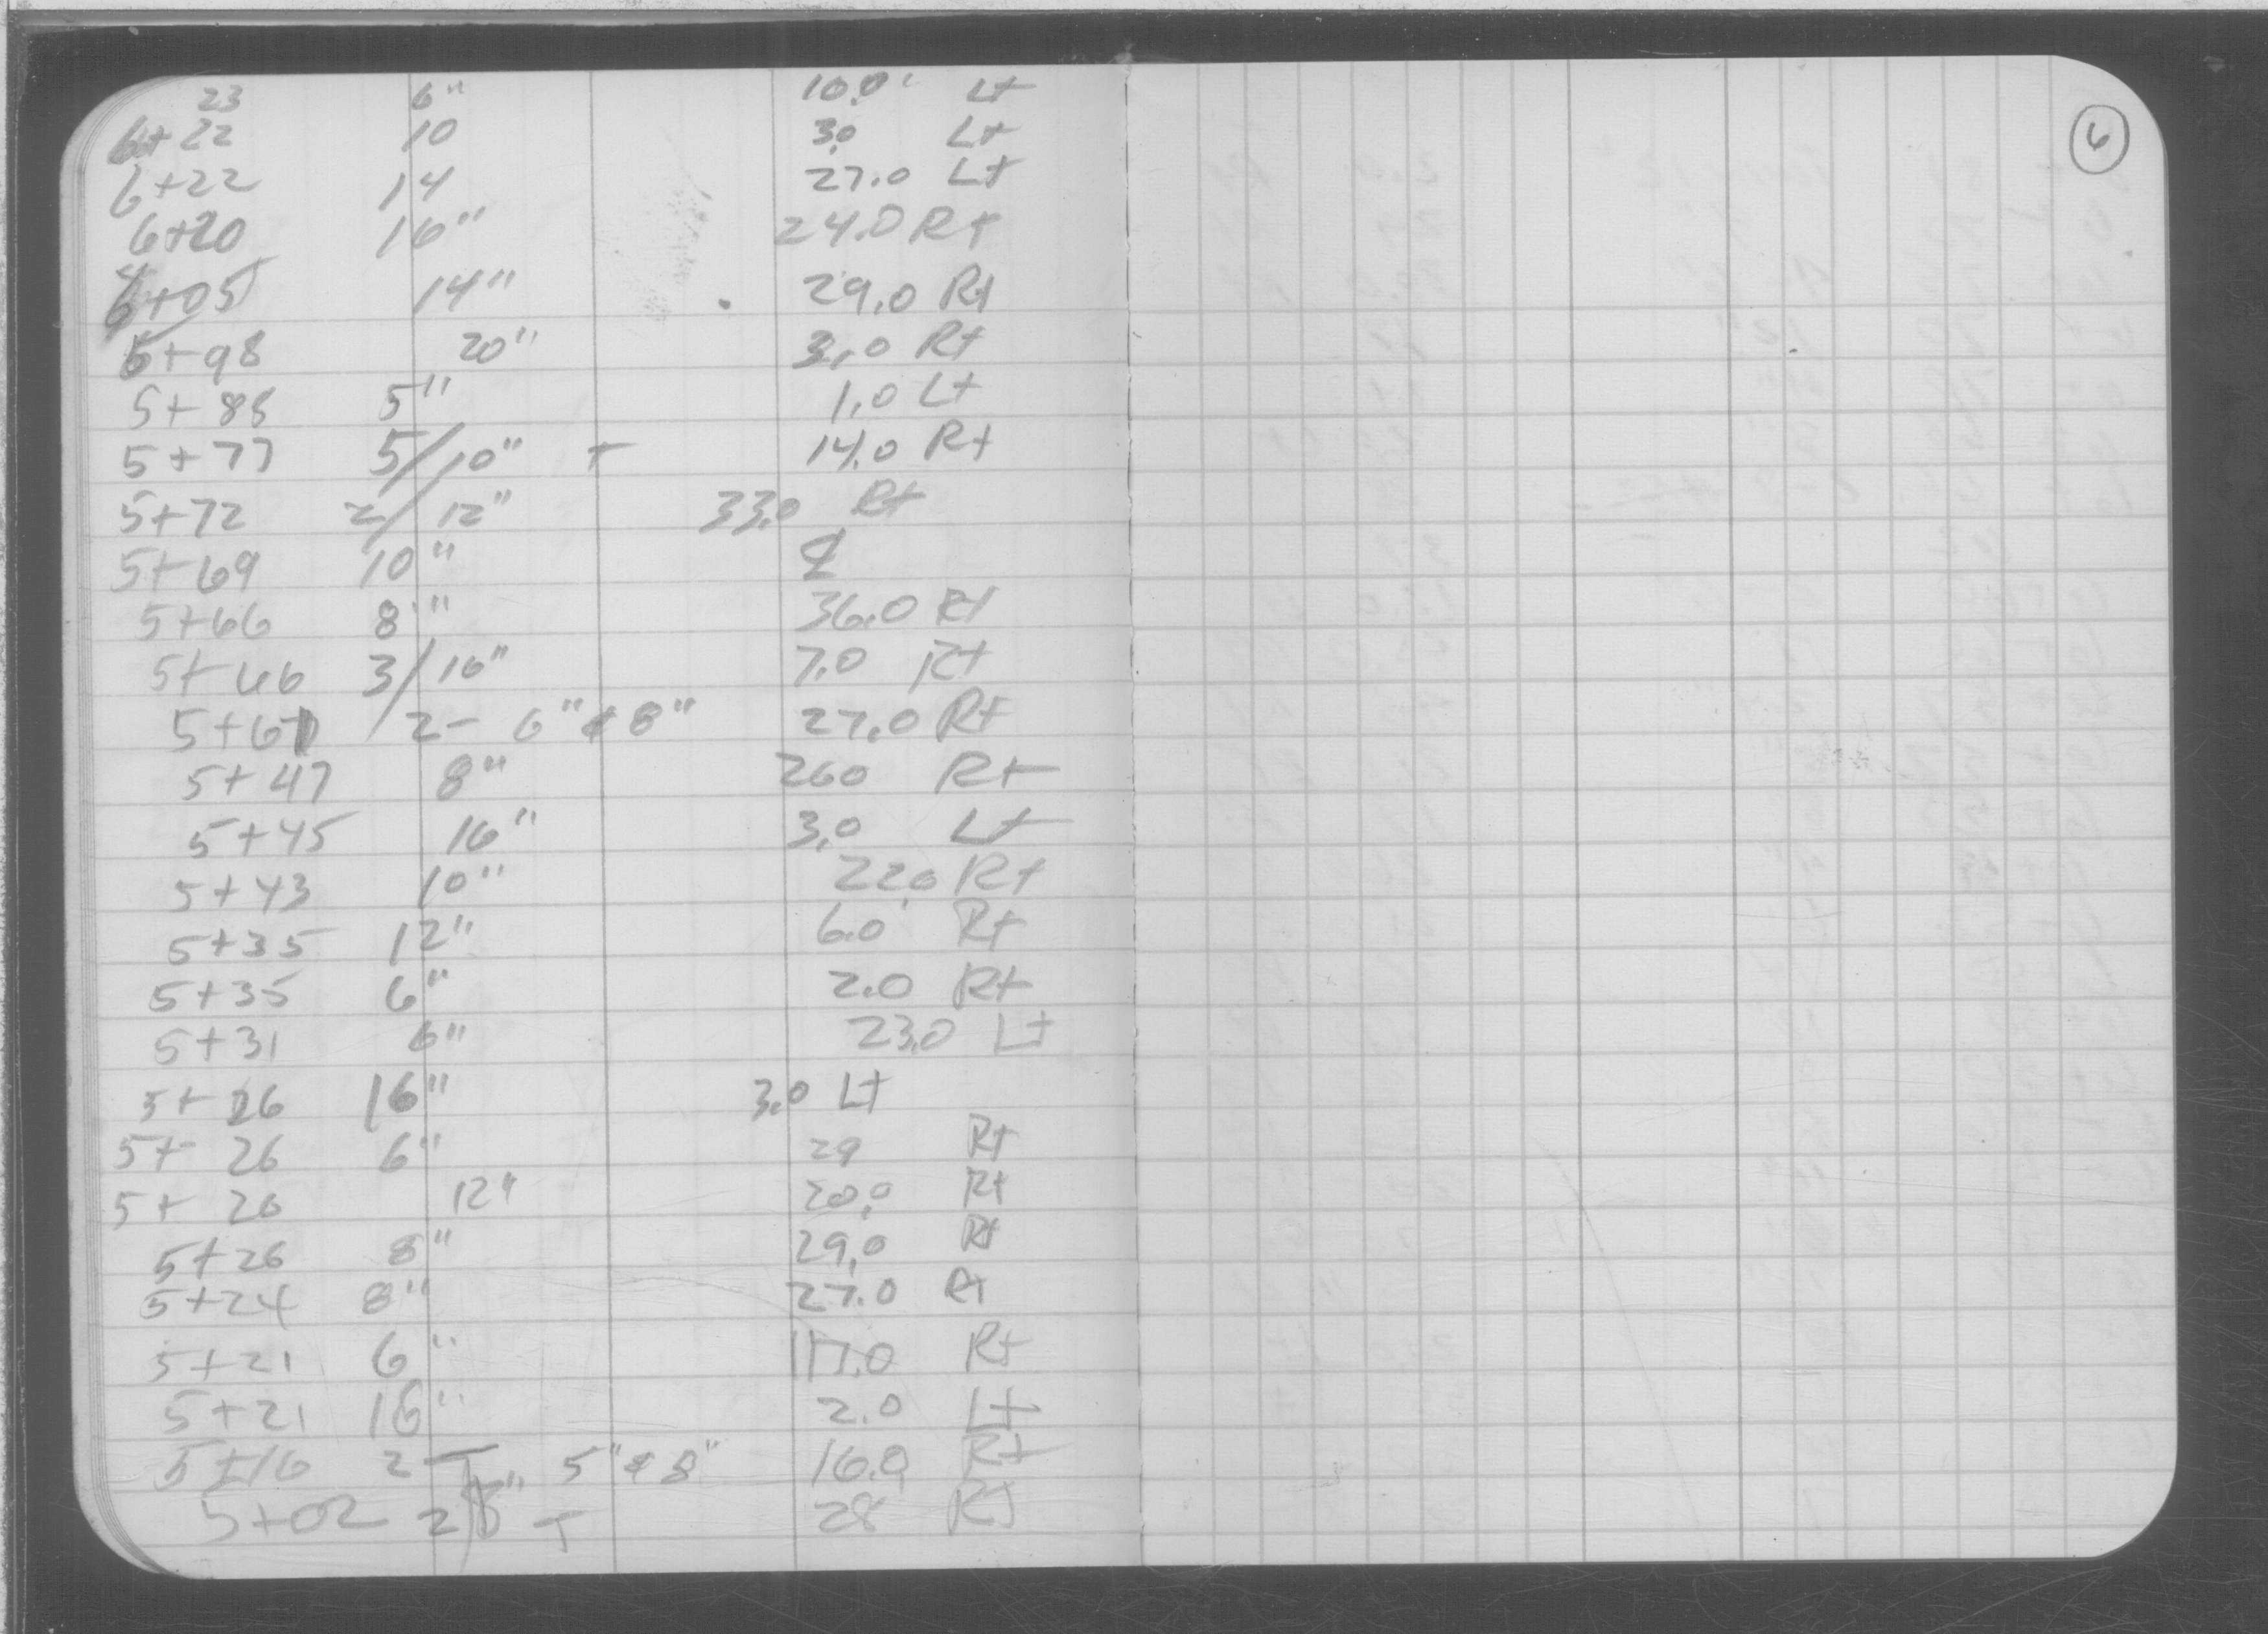 23 6" 10.0' Lt
6+22 10 3.0 Lt
6+22 14 27.0 Lt
6+20 16" 24.0 Rt
6+05 14" 29.0 Rt
5+98 20" 3.0 Rt
5+88 5" 1.0 Lt
5+77 5/10" T 14.0 Rt
5+72 2/12" 33.0 Rt
5+69 10" ℄
5+66 8" 36.0 Rt
5+66 3/16" 7.0 Rt
5+61 2- 6" & 8" 27.0 Rt
5+47 8" 260 Rt
5+45 16" 3.0 Lt
5+43 10" 22.0 Rt
5+35 12" 6.0' Rt
5+35 6" 2.0 Rt
5+31 6" 23.0 Lt
5+26 16" 3.0 Lt
5+26 6" 29 Rt
5+26 12" 20.0 Rt
5+26 8" 29.0 Rt
5+24 8" 27.0 Rt
5+21 6" 17.0 Rt
5+21 16" 2.0 Lt
5+16 2-T 5" & 8" 16.0 Rt
5+02 2/8" T 28 Rt
6